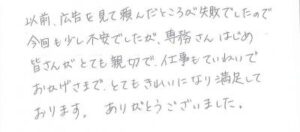 以前、広告を見て頼んだところが失敗でしたので
今回も少し不安でしたが、専務さんはじめ
皆さんがとても親切で、仕事もていねいで
おかげさまで、とてもきれいになり満足して
おります。 ありがとうございました。